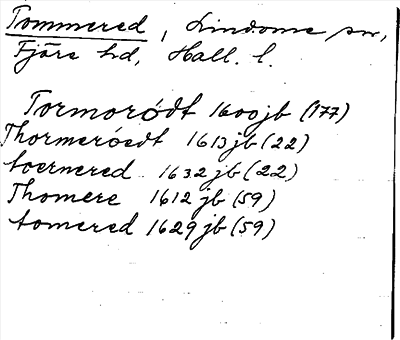 Tommered, Lindome sn,
Fjäre hd, Hall. l.
Tormorödt 1600 jb (177)
Thormeröedt 1613 jb (22)
toernered 1632 jb (22)
Thomere 1612 jb (59)
tomered 1629 jb (59)